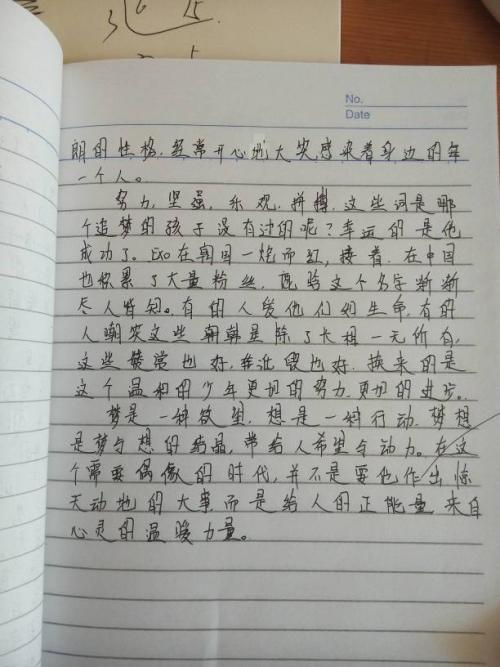 3 6 15
5
No.
Date
朗的性格,经常开心地大笑,感染着身边的每
一个人。
努力,坚强,乐观,拼搏,这些词是哪
个追梦的孩子没有过的呢?幸运的是他
成功了。Exo在韩国一炮而红,接着,在中国
也积累了大量粉丝,这个名字渐渐
尽人皆知。有的人爱他们如生命,有的
人嘲笑这些韩星除了长相一无价有,
这些赞赏也好,诋毁也好,换来的是
这个温和的少年更加的努力,更加的进步。
梦是一种欲望,想是一种行动,梦想
是梦与想的结晶,带给人希望与动力。在这
个需要偶像的时代,并不是要他作出惊
天动地的大事,而是给人的正能量,来自
心灵的温暖力量。